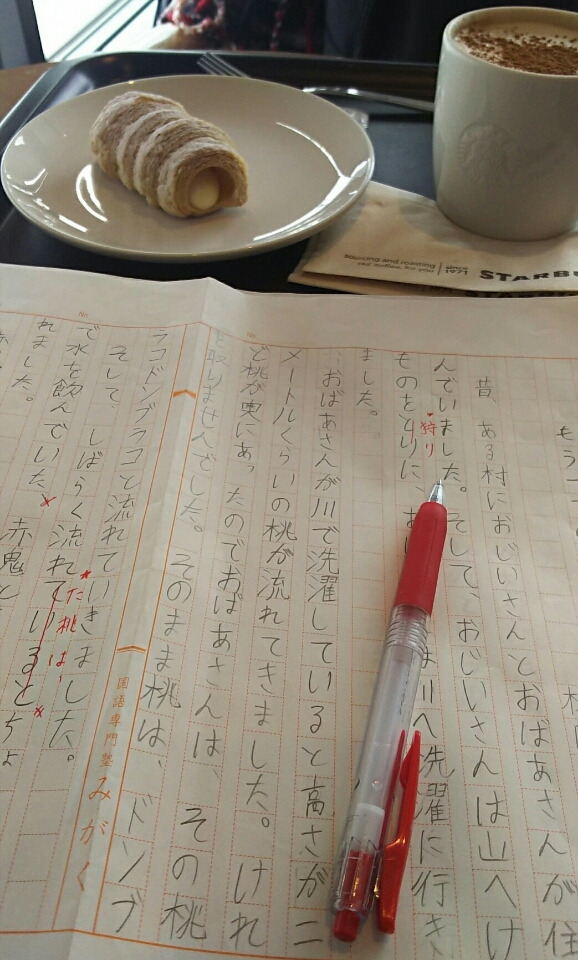 もう一
昔、ある村におじいさんとおばあさんが住
んでいました。そして、おじいさんは山へけ
ものをとりに、お
狩り
は川へ洗濯に行き
ました。
おばあさんが川で洗濯していると高さが二
メートルくらいの桃が流れてきました。けれ
ど桃が奥にあったのでおばあさんは、その桃
を取りませんでした。そのまま桃は、ドンブ
ラコドンブラコと流れていきました。
そして、しばらく流れているとちょ
た桃は、
で水を飲んでいた、赤鬼と
れました。
国語専門塾 みがく
No.
No.
sourcing and roasting
since
1971